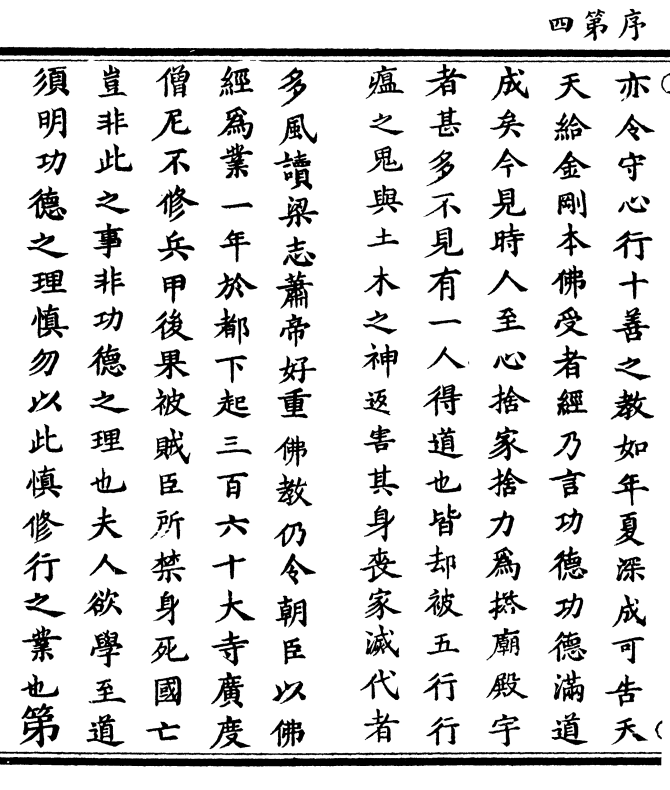 序第四
亦令守心行十善之教如年夏深成可告天
天給金剛本佛受者經乃言功德功德滿道
成矣今見時人至心捨家捨力爲搭廟殿宇
者甚多不見有一人得道也皆却被五行行
瘟之鬼與土木之神返害其身丧家滅代者
多風讀梁志蕭帝好重佛教仍令朝臣以佛
經爲業一年於都下起三百六十大寺廣度
僧尼不修兵甲後果被賊臣所禁身死國亡
豈非此之事非功德之理也夫人欲學至道
須明功德之理慎勿以此慎修行之業也第